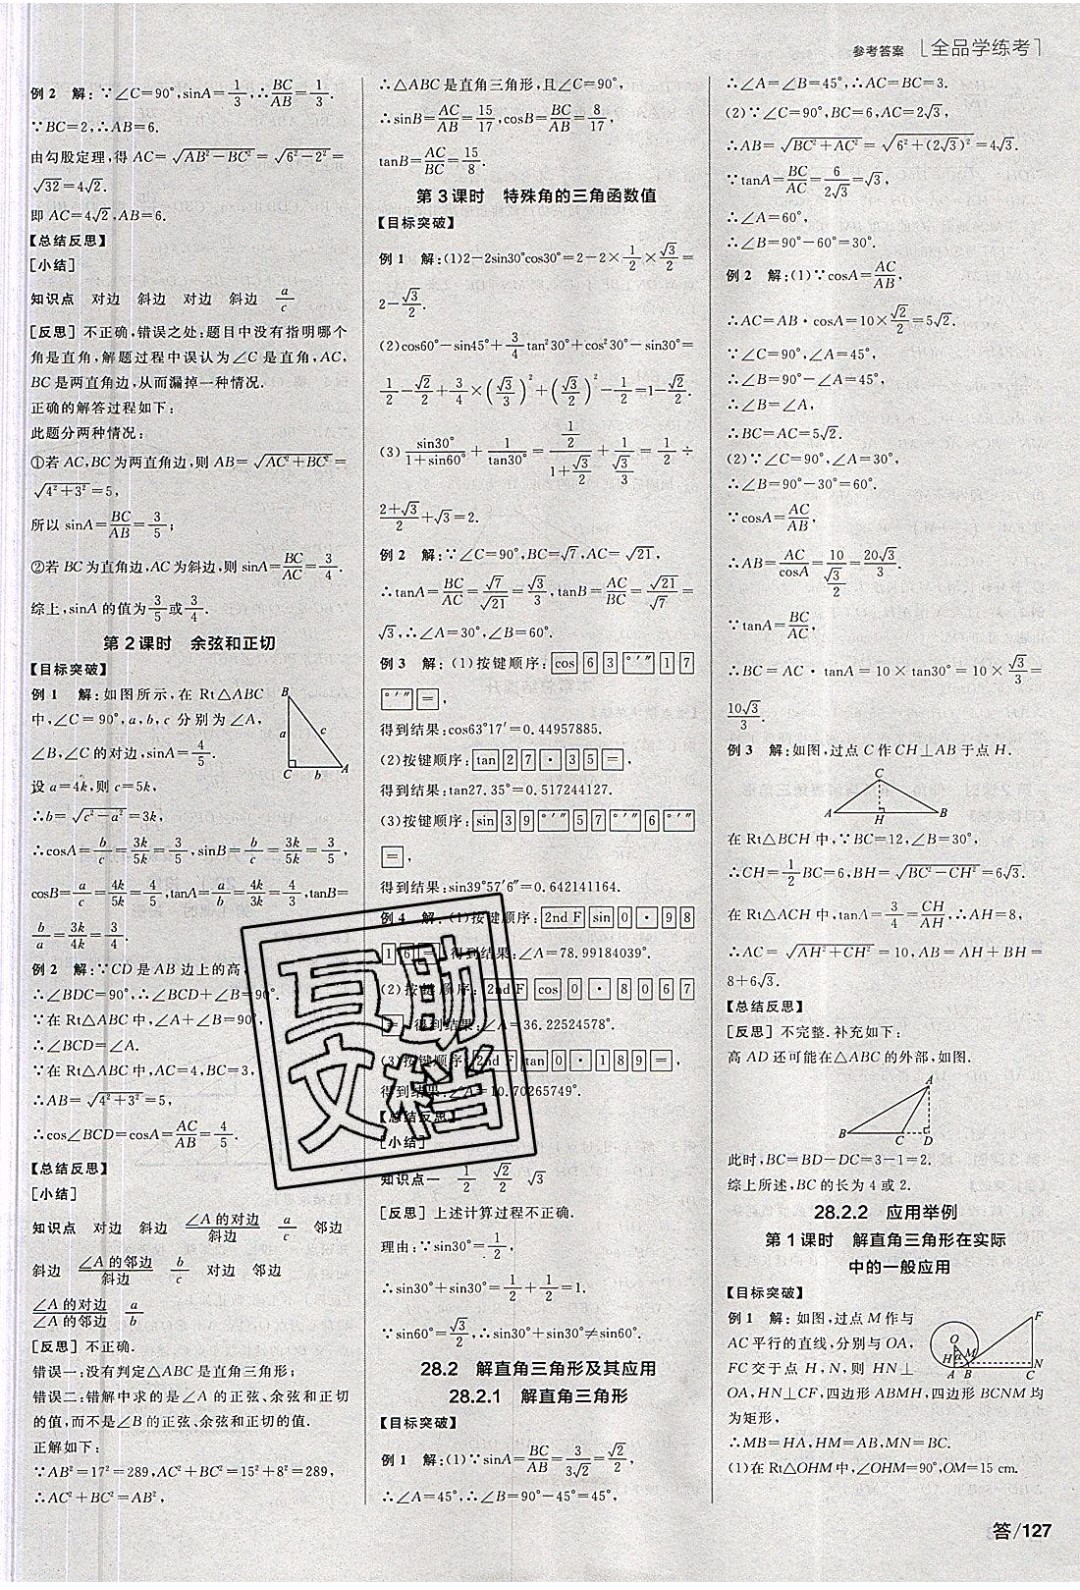 参考答案 [全品学练考]
例 2 解:∵∠C=90°,sinA=1/3,∴BC/AB=1/3.
∵BC=2,∴AB=6.
由勾股定理,得 AC=√(AB²-BC²)=√(6²-2²)=
√32=4√2.
即 AC=4√2,AB=6.
【总结反思】
[小结]
知识点 对边 斜边 对边 斜边 a/c
[反思] 不正确,错误之处:题目中没有指明哪个
角是直角,解题过程中误认为∠C 是直角,AC,
BC 是两直角边,从而漏掉一种情况.
正确的解答过程如下:
此题分两种情况:
①若 AC,BC 为两直角边,则 AB=√(AC²+BC²)=
√(4²+3²)=5,
所以 sinA=BC/AB=3/5;
②若 BC 为直角边,AC 为斜边,则 sinA=BC/AC=3/4.
综上,sinA 的值为3/5或3/4.
第 2 课时 余弦和正切
【目标突破】
例 1 解:如图所示,在 Rt△ABC
中,∠C=90°,a,b,c 分别为∠A,
∠B,∠C 的对边,sinA=4/5.
设 a=4k,则 c=5k,
B
a c
C b A
∴b=√(c²-a²)=3k,
∴cosA=b/c=3k/5k=3/5,sinB=b/c=3k/5k=3/5,
cosB=a/c=4k/5k=4/5,tanA=a/b=4k/3k=4/3,tanB=
b/a=3k/4k=3/4.
例 2 解:∵CD 是 AB 边上的高,
∴∠BDC=90°,∴∠BCD+∠B=90°.
∵在 Rt△ABC 中,∠A+∠B=90°,
∴∠BCD=∠A.
∵在 Rt△ABC 中,AC=4,BC=3,
∴AB=√(4²+3²)=5,
∴cos∠BCD=cosA=AC/AB=4/5.
【总结反思】
[小结]
知识点 对边 斜边 ∠A的对边/斜边 a/c 邻边
斜边 ∠A的邻边/斜边 b/c 对边 邻边
∠A的对边/∠A的邻边 a/b
[反思] 不正确.
错误一:没有判定△ABC 是直角三角形;
错误二:错解中求的是∠A 的正弦、余弦和正切
的值,而不是∠B 的正弦、余弦和正切的值.
正解如下:
∵AB²=17²=289,AC²+BC²=15²+8²=289,
∴AC²+BC²=AB²,
∴△ABC 是直角三角形,且∠C=90°,
∴sinB=AC/AB=15/17,cosB=BC/AB=8/17,
tanB=AC/BC=15/8.
第 3 课时 特殊角的三角函数值
【目标突破】
例 1 解:(1)2-2sin30°cos30°=2-2×1/2×√3/2=
2-√3/2.
(2)cos60°-sin45°+3/4tan²30°+cos²30°-sin30°=
1/2-√2/2+3/4×(√3/3)²+(√3/2)²-1/2=1-√2/2.
(3)sin30°/(1+sin60°)+1/tan30°=(1/2)/(1+√3/2)+1/(√3/3)=1/2÷
(2+√3)/2+√3=2.
例 2 解:∵∠C=90°,BC=√7,AC=√21,
∴tanA=BC/AC=√7/√21=√3/3,tanB=AC/BC=√21/√7=
√3,∴∠A=30°,∠B=60°.
例 3 解:(1)按键顺序:cos 6 3 °′″ 1 7
°′″ =,
得到结果:cos63°17′=0.44957885.
(2)按键顺序:tan 2 7 · 3 5 =,
得到结果:tan27.35°=0.517244127.
(3)按键顺序:sin 3 9 °′″ 5 7 °′″ 6 °′″
=,
得到结果:sin39°57′6″=0.642141164.
例 4 解:(1)按键顺序:2nd F sin 0 · 9 8
1 6 =,得到结果:∠A=78.99184039°.
(2)按键顺序:2nd F cos 0 · 8 0 6 7
=,得到结果:∠A=36.22524578°.
(3)按键顺序:2nd F tan 0 · 1 8 9 =,
得到结果:∠A=10.70265749°.
【总结反思】
[小结]
知识点一 1/2 √2/2 √3
[反思] 上述计算过程不正确.
理由:∵sin30°=1/2,
∴sin30°+sin30°=1/2+1/2=1.
∵sin60°=√3/2,∴sin30°+sin30°≠sin60°.
28.2 解直角三角形及其应用
28.2.1 解直角三角形
【目标突破】
例 1 解:(1)∵sinA=BC/AB=3/3√2=√2/2,
∴∠A=45°,∴∠B=90°-45°=45°,
∴∠A=∠B=45°,∴AC=BC=3.
(2)∵∠C=90°,BC=6,AC=2√3,
∴AB=√(BC²+AC²)=√(6²+(2√3)²)=4√3.
∵tanA=BC/AC=6/2√3=√3,
∴∠A=60°,
∴∠B=90°-60°=30°.
例 2 解:(1)∵cosA=AC/AB,
∴AC=AB·cosA=10×√2/2=5√2.
∵∠C=90°,∠A=45°,
∴∠B=90°-∠A=45°,
∴∠B=∠A,
∴BC=AC=5√2.
(2)∵∠C=90°,∠A=30°,
∴∠B=90°-30°=60°.
∵cosA=AC/AB,
∴AB=AC/cosA=10/(√3/2)=20√3/3.
∵tanA=BC/AC,
∴BC=AC·tanA=10×tan30°=10×√3/3=
10√3/3.
例 3 解:如图,过点 C 作 CH⊥AB 于点 H.
C
A H B
在 Rt△BCH 中,∵BC=12,∠B=30°,
∴CH=1/2BC=6,BH=√(BC²-CH²)=6√3.
在 Rt△ACH 中,tanA=3/4=CH/AH,∴AH=8,
∴AC=√(AH²+CH²)=10,AB=AH+BH=
8+6√3.
【总结反思】
[反思] 不完整.补充如下:
高 AD 还可能在△ABC 的外部,如图.
A
B C D
此时,BC=BD-DC=3-1=2.
综上所述,BC 的长为 4 或 2.
28.2.2 应用举例
第 1 课时 解直角三角形在实际
中的一般应用
【目标突破】
例 1 解:如图,过点 M 作与
AC 平行的直线,分别与 OA,
FC 交于点 H,N,则 HN⊥
F
O
H α M N
A B C
OA,HN⊥CF,四边形 ABMH,四边形 BCNM 均
为矩形,
∴MB=HA,HM=AB,MN=BC.
(1)在 Rt△OHM 中,∠OHM=90°,OM=15 cm.
互助
文档
答/127